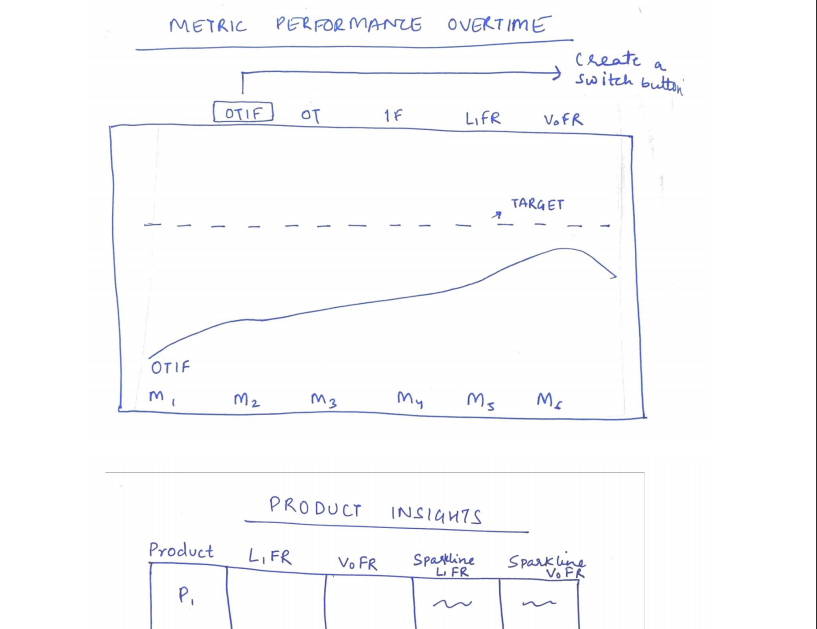 METRIC PERFORMANCE OVERTIME
Create a
switch button
OTIF OT IF LIFR VOFR
TARGET
OTIF
M1 M2 M3 M4 M5 M6
PRODUCT INSIGHTS
Product LIFR VOFR Sparkline LIFR Sparkline VOFR
P1